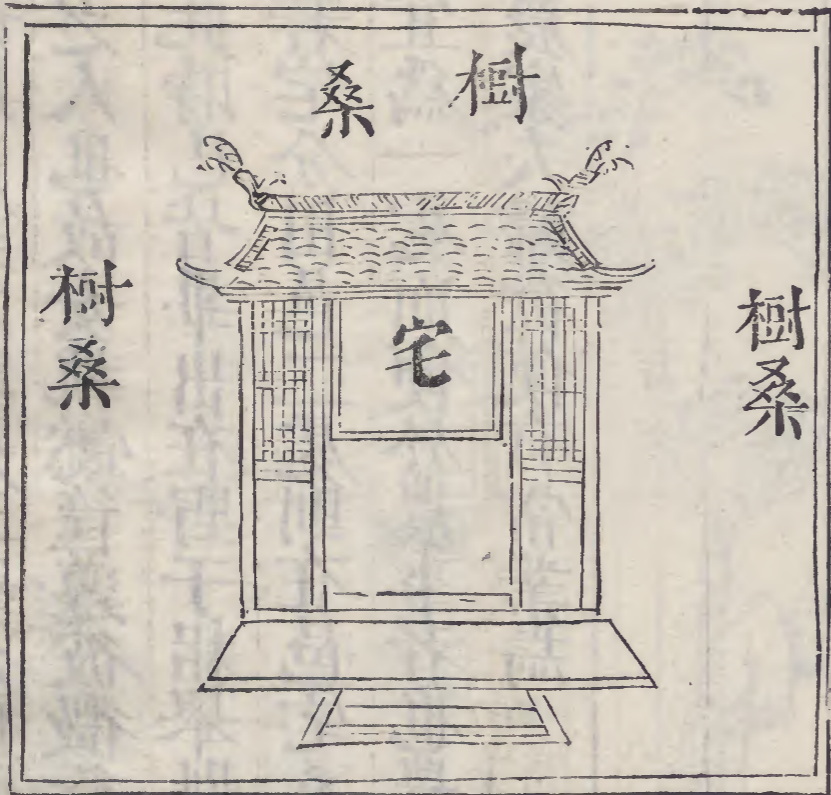 樹桑
樹桑
宅
樹桑